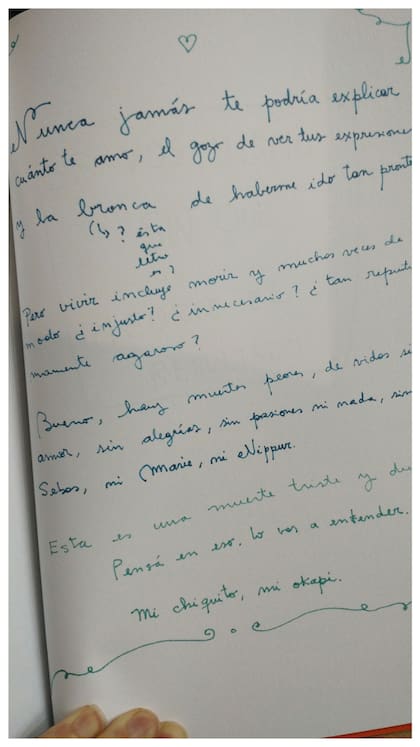 Nunca jamás te podría explicar
cuánto te amo, el gozo de ver tus expresione
y la bronca de haberme ido tan pronto
(b) ? ésta
que
letra
es?
Pero vivir incluye morir y muchas veces de
modo ¿injusto? ¿innecesario? ¿tan repenti
mamente
Bueno, hay muertes peores, de vidas si
amor, sin alegrías, sin pasiones ni nada, sin
Sebas, mi Marie, mi Nippur.
Esta es una muerte triste y du
Pensá en eso. Lo vas a entender.
Mi chiquito, mi okapi.